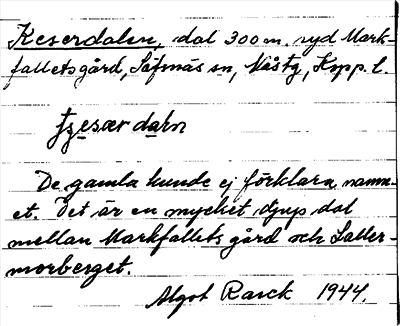 Keserdalen, dal 300 m. syd Mark-
fallets gård, Säfsnäs sn, Nåstg, Kopp. l.
tjesær daln
De gamla kunde ej förklara namn-
et. Det är en mycket djup dal
mellan Markfallets gård och Satter-
morberget.
Algot Rasck 1944.